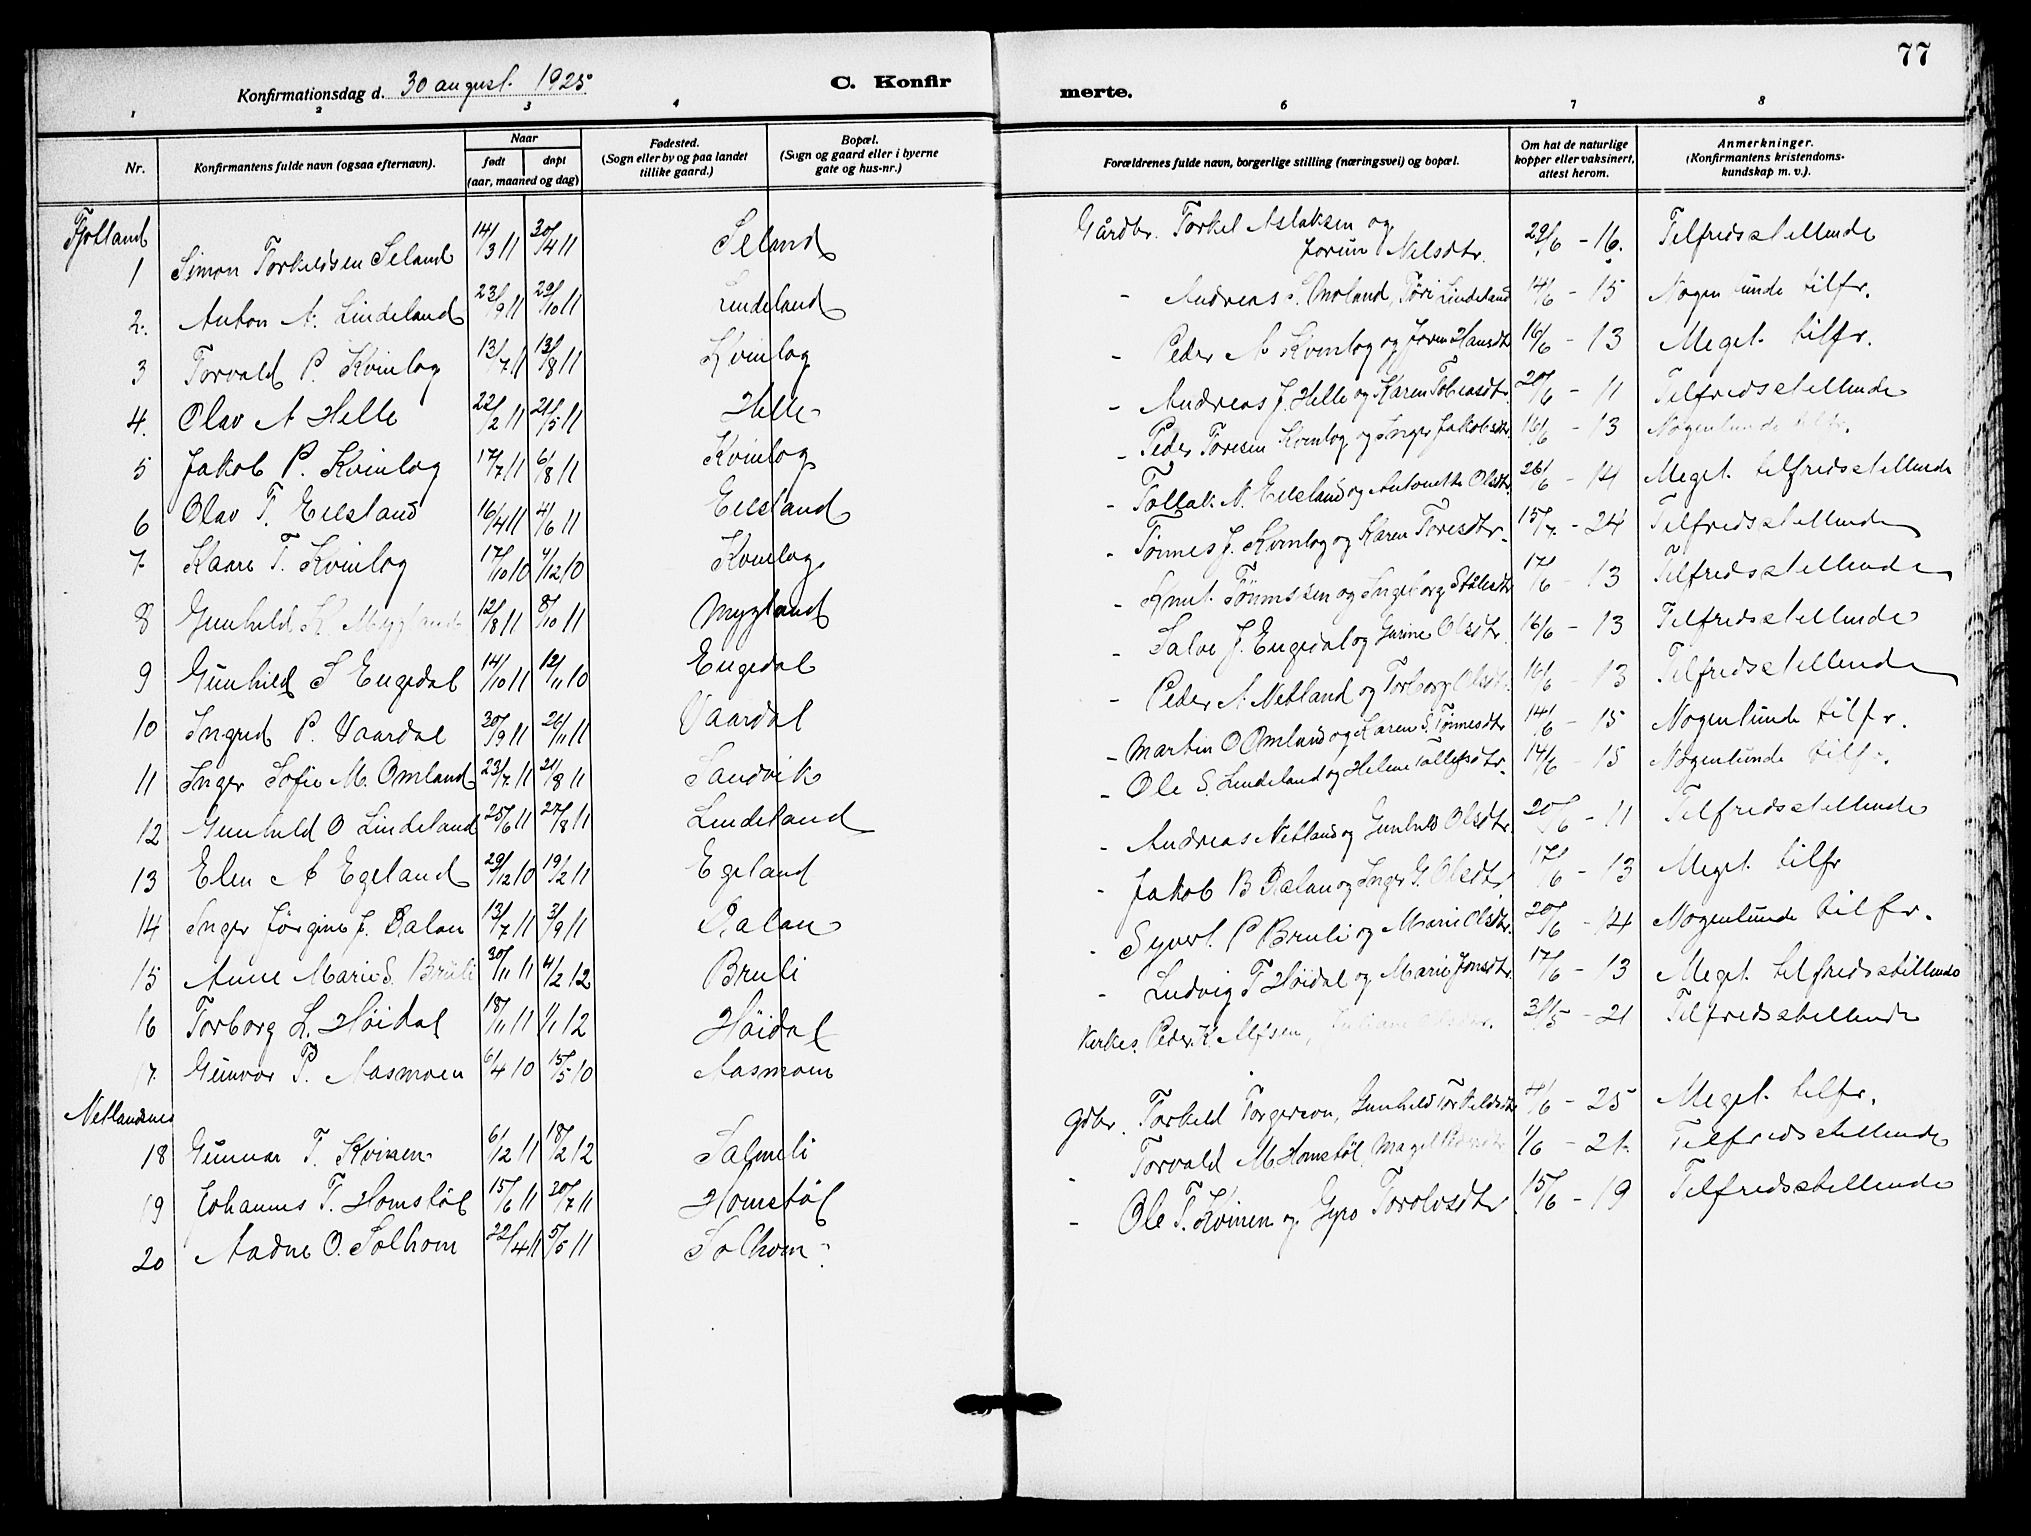 77
Konfirmationsdag d. 30 august. 1925
C. Konfirmerte.
1 2 3 4 6 7 8
Nr.
Konfirmantens fulde navn (ogsaa efternavn).
Naar
født døpt
(aar, maaned og dag)
Fødested.
(Sogn eller by og paa landet
tillike gaard.)
Bopæl.
(Sogn og gaard eller i byerne
gate og hus-nr.)
Forældrenes fulde navn, borgerlige stilling (næringsvei) og bopæl.
Om hat de naturlige
kopper eller vaksinert,
attest herom.
Anmerkninger.
(Konfirmantens kristendoms-
kundskap m. v.).
Fjotland
1 Simon Torkeldsen Seland 14/3 11 30/4 11 Seland Gårdbr. Torkel Aslaksen og
Jorun Nelsdtr. 29/6 - 16. Tilfredsstillende
2. Anton A. Lindeland 23/9 11 29/10 11 Lindeland - Andreas S. Omland, Töri Lindeland 14/6 - 15 Nogenlunde tilfr.
3 Torvald P. Kvinlog 13/7 11 13/8 11 Kvinlog - Peder A Kvinlog og Joren Hansdtr 16/6 - 13 Meget tilfr.
4. Olav A Helle 22/2 11 21/5 11 Helle - Andreas J. Helle og Karen Tobiasdtr 20/6 - 11 Tilfredsstillende
5 Jakob P. Kvinlog 17/7 11 6/8 11 Kvinlog - Peder Toresen Kvinlog og Inger Jakobsdtr 16/6 - 13 Nogenlunde tilfr.
6 Olav T. Eilsland 16/4 11 4/6 11 Eilsland - Tollak N. Eilsland og Antonette Olsdtr 26/6 - 14 Meget tilfredsstillende
7 Kaare T. Kvinlog 17/10 10 4/12 10 Kvinlog - Tönnes J. Kvinlog og Karen Toresdtr. 15/7 - 24 Tilfredsstillende
8 Gunhild K. Mygland 12/8 11 8/10 11 Mygland - Knut Tönnessen og Ingeborg Stålesdtr 17/6 - 13 Tilfredsstillende
9 Gunhild S Engedal 14/10 11 12/11 10 Engedal - Salve J. Engedal og Gurine Olsdtr 16/6 - 13 Tilfredsstillende
10 Ingred P. Vaardal 30/9 11 26/11 11 Vaardal - Peder A. Netland og Torborg Olsdtr. 16/6 - 13 Tilfredsstillende
11 Inger Sofie M. Omland 23/7 11 21/8 11 Sandvik - Martin O Omland og Karen S. Tönnesdtr 14/6 - 15 Nogenlunde tilfr.
12 Gunhild O Lindeland 25/6 11 27/8 11 Lindeland - Ole S. Lindeland og Helene Tallefsdtr. 14/6 - 15 Nogenlunde tilfr.
13 Elen A Egeland 29/12 10 19/2 11 Egeland - Andreas Netland og Gunhild Olsdtr 20/6 - 11 Tilfredsstillende
14 Inger Jørgine J. Dalan 13/7 11 3/9 11 Dalan - Jakob B Dalan og Inger G. Olsdtr 17/6 - 13 Meget tilfr
15 Anne Marie S. Bruli 30/11 11 4/2 12 Bruli - Syvert P Bruli og Marie Olsdtr. 20/6 - 14 Nogenlunde tilfr.
16 Torborg L. Höidal 18/11 11 1/1 12 Höidal - Ludvig T Höidal og Marie Jonsdtr. 17/6 - 13 Meget tilfredsstillende
17. Gunvor P. Aasmoen 6/4 10 15/5 10 Aasmoen Kirkes. Peder K. 31/5 - 21 Tilfredsstillende
Netlandsnes
18 Gunnar T. Kvinen 6/12 11 18/2 12 Salmeli Gdbr. Torkeld Torgerson, Gunhild Torkeldsdtr 7/6 - 25 Meget tilfr.
19 Johannes T. Homstöl 15/6 11 30/7 11 Homstöl - Torvald M Homstöl, 1/6 - 21. Tilfredsstillende
20 Aadne O. Solhom 22/4 11 5/5 11 Solhom - Ole T. Kvinen og Gyro Torolvsdtr 15/6 - 19 Tilfredsstillende